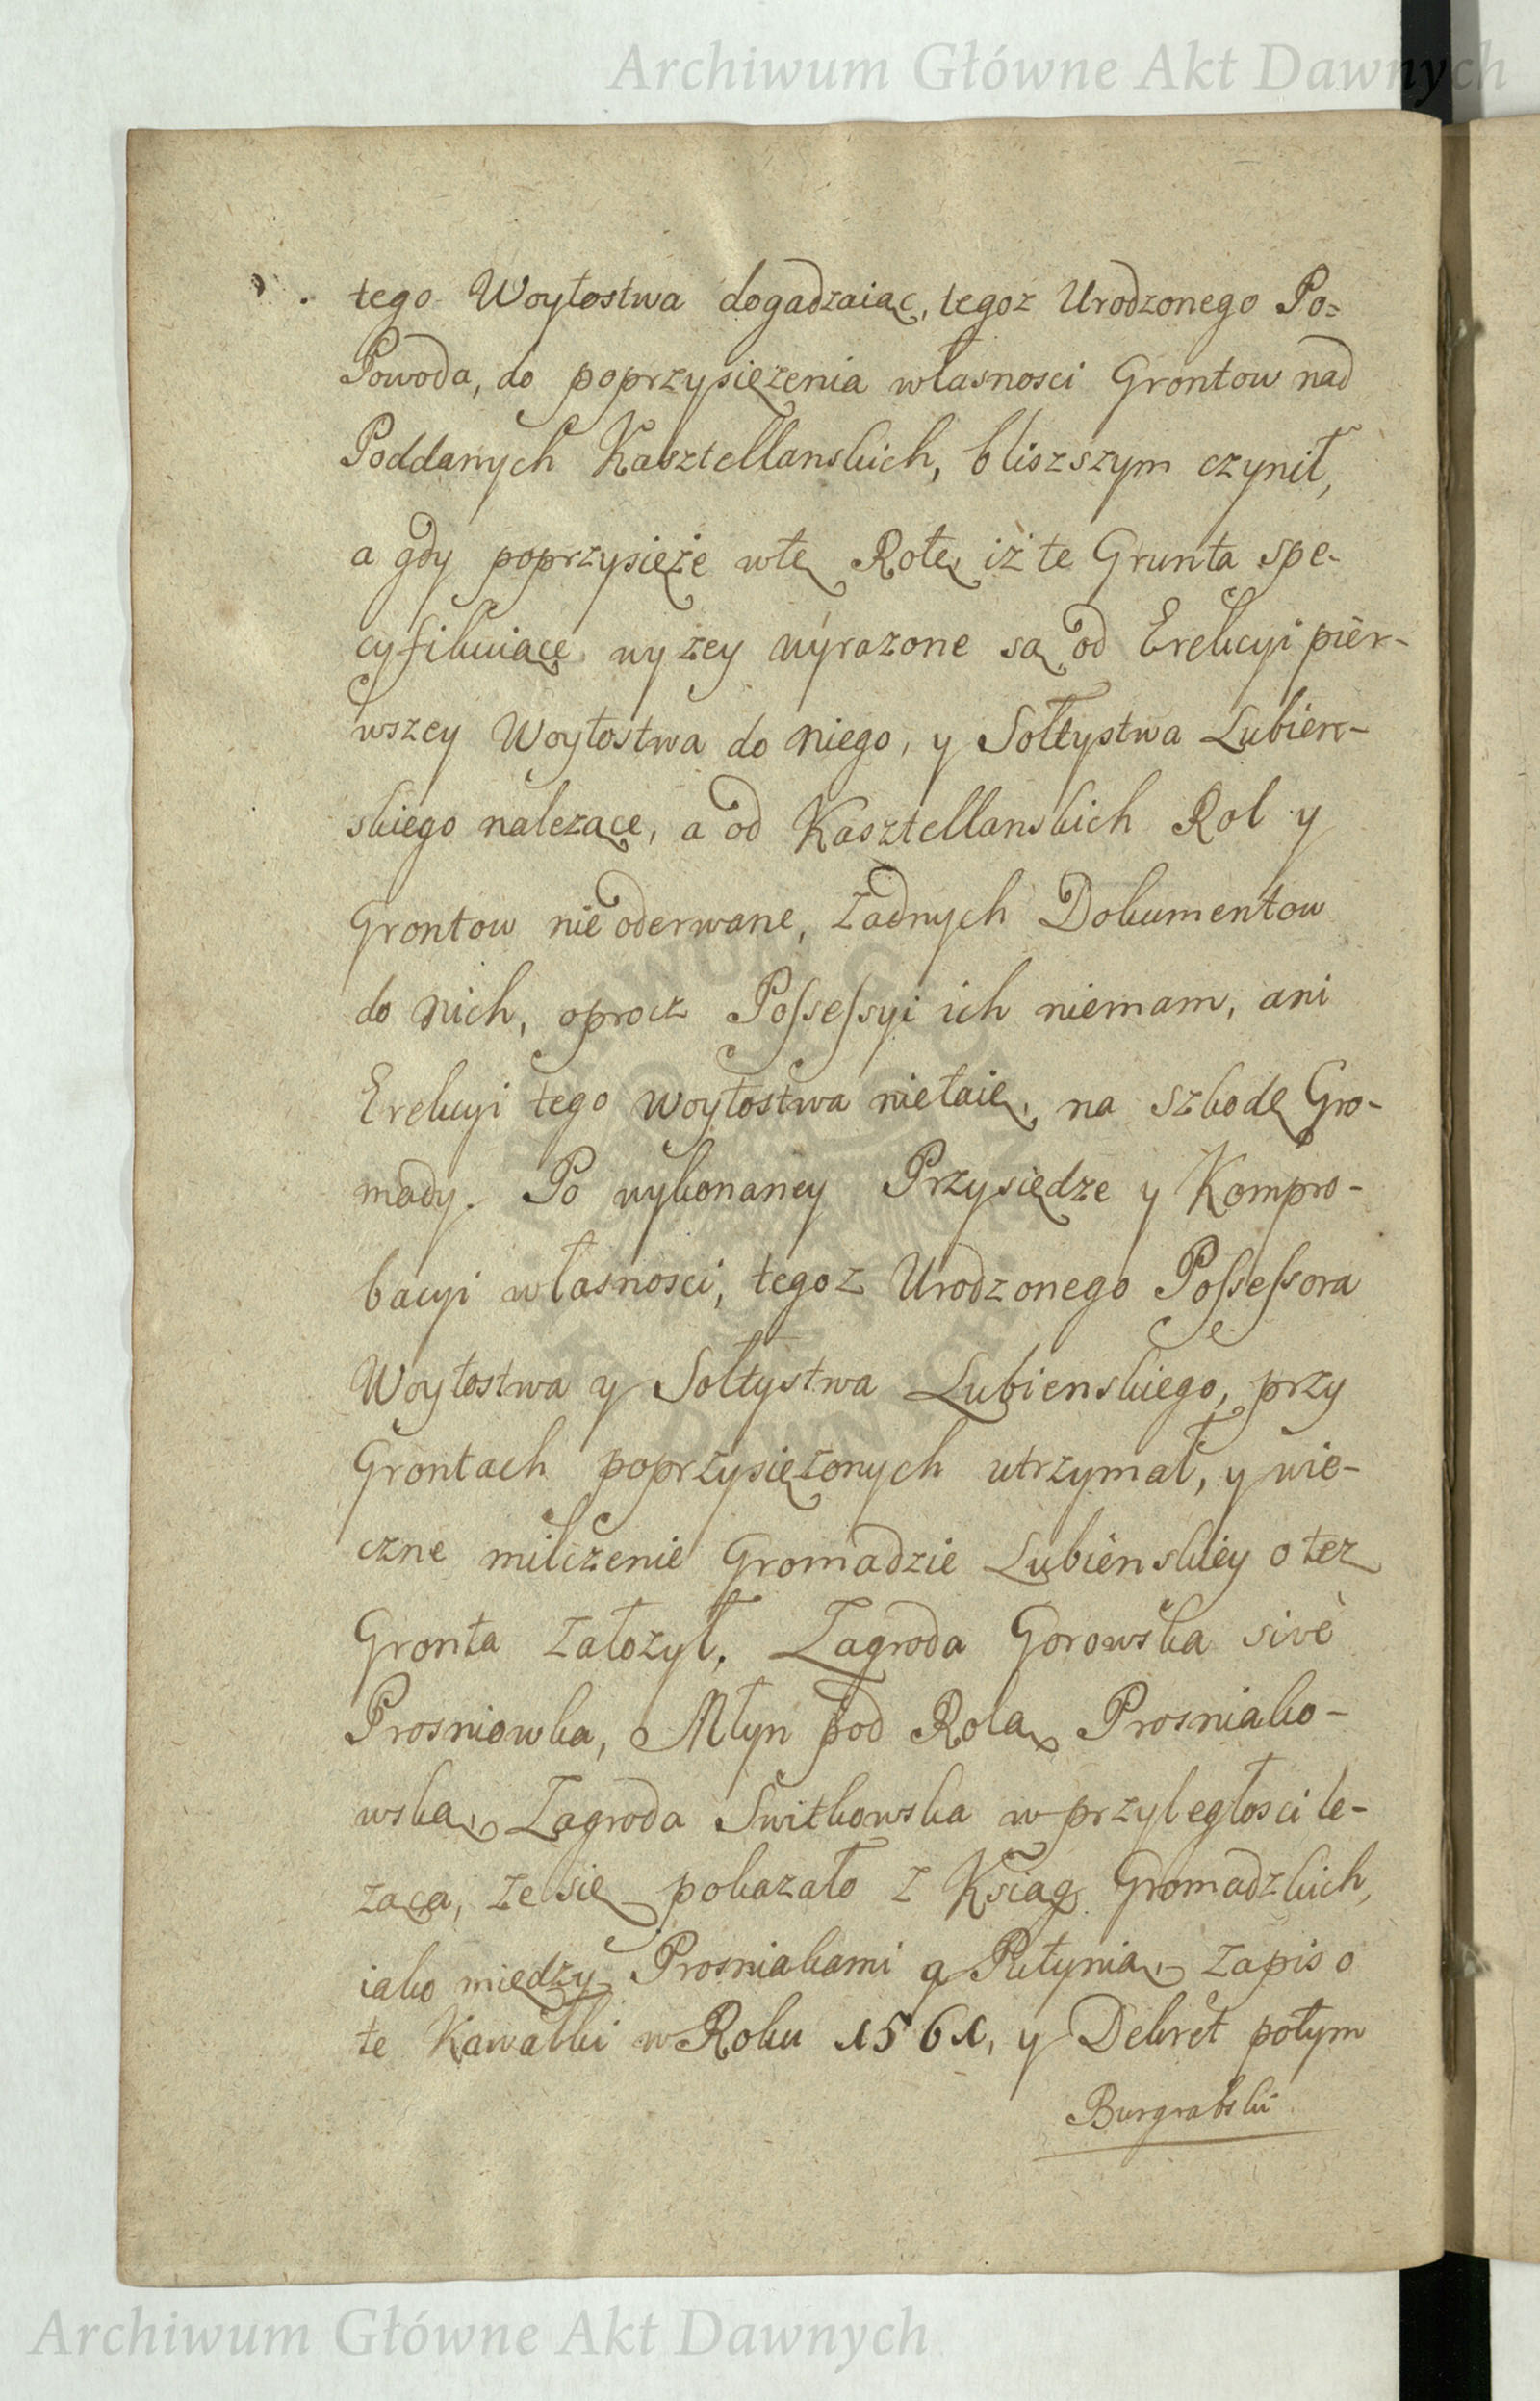 Archiwum Główne Akt Dawnych
tego Woytostwa dogadzaiąc, tegoz Urodzonego Po=
Powoda, do poprzysięzenia własnosci Grontow nad
Poddanych Kasztellanskich, bliszszym czynił,
a gdy poprzysięże wtę Rotę, iż te Grunta spe-
cyfikuiące wyzey wyrazone są od Erekcyi pier-
wszey Woytostwa do niego, y Sołtystwa Lubien-
skiego nalezące, a od Kasztellanskich Rol y
Grontow nie oderwane, żadnych Dokumentow
do nich, oprocz Possessyi ich niemam, ani
Erekcyi tego Woytostwa nietaię, na szkodę Gro-
mady. Po wykonaney Przysiędze y Kompro-
bacyi własnosci, tegoz Urodzonego Possessora
Woytostwa y Sołtystwa Lubienskiego, przy
Grontach poprzysięzonych utrzymał, y wie-
czne milczenie Gromadzie Lubienskiey o tez
Gronta załozył. Zagroda Gorowska sive
Prosniowka, Młyn pod Rolą Prosniako-
wską, Zagroda Switkowska w przyległosci le-
ząca, ze się pokazało z Ksiąg Gromadzkich,
iako między Prosniakami a Putynią, Zapis o
te Kawałki w Roku 1561, y Dekret potym
Burgrabski
Archiwum Główne Akt Dawnych